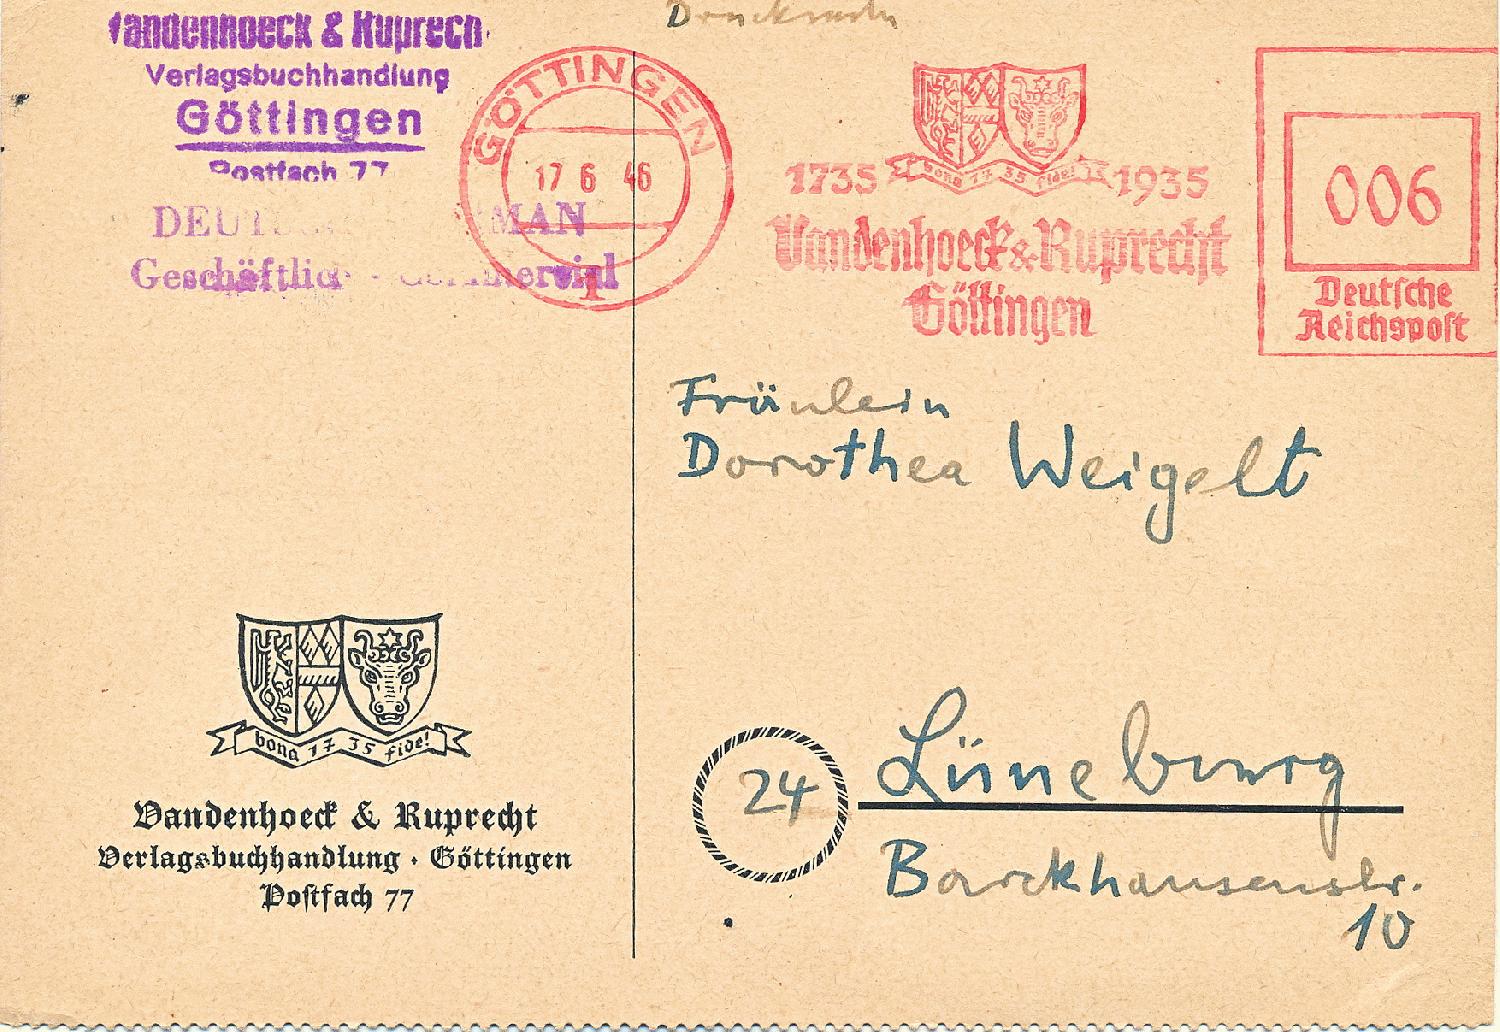 Vandenhoeck & Ruprech
Verlagsbuchhandlung
Göttingen
Postfach 77
DEUTSCH MAN
Geschäftlich - Commercial
Drucksache
GÖTTINGEN
17 6 46
1
bona 17 35 fide!
1735 1935
Vandenhoeck & Ruprecht
Göttingen
006
Deutsche
Reichspost
Fräulein
Dorothea Weigelt
24 Lüneburg
Barckhausenstr.
10
bona 17 35 fide!
Vandenhoeck & Ruprecht
Verlagsbuchhandlung · Göttingen
Postfach 77